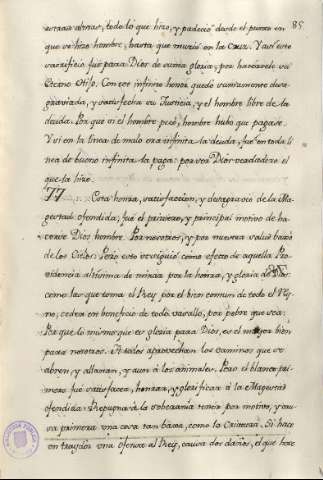 85
nuestras almas, todo lo que hizo, y padeció desde el punto en
que se hizo hombre, hasta que murió en la Cruz. Y así este
sacrificio fue para Dios de suma gloria, por hacersele su
Eterno Hijo. Con este infinito honor quedó sumamente desa-
graviada, y satisfecha su Justicia, y el hombre libre de la
deuda. Porque si el hombre pecó, hombre hubo que pagase.
Y si en la linea de malo era infinita la deuda, fue en toda li
nea de bueno infinita la paga: por ser Dios verdadero el
que la hizo.
77 Esta honra, satisfaccion, y desagravio de la Ma-
gestad ofendida, fue el primero, y principal motivo de ha-
cerse Dios hombre. Por nosotros, y por nuestra salud baxó
de los Cielos. Pero esto se siguió como efecto de aquella Pro
videncia altisima de mirar por la honra, y gloria de Dios:
como las que toma el Rey por el bien comun de todo el Rey-
no, ceden en beneficio de todo vasallo, por pobre que sea.
Porque lo mismo que es gloria para Dios, es el mayor bien
para nosotros. A todos aprovechan los caminos que se
abren, y allanan, y aun á los animales. Pero el blanco pri-
mero fue satisfacer, honrar, y glorificar á la Magestad
ofendida. Repugnará la soberanía tener por motivo, y cau
sa primera una cosa tan baxa, como la Criatura. Si hace
un traydor una ofensa al Rey, causa dos daños, el que hace